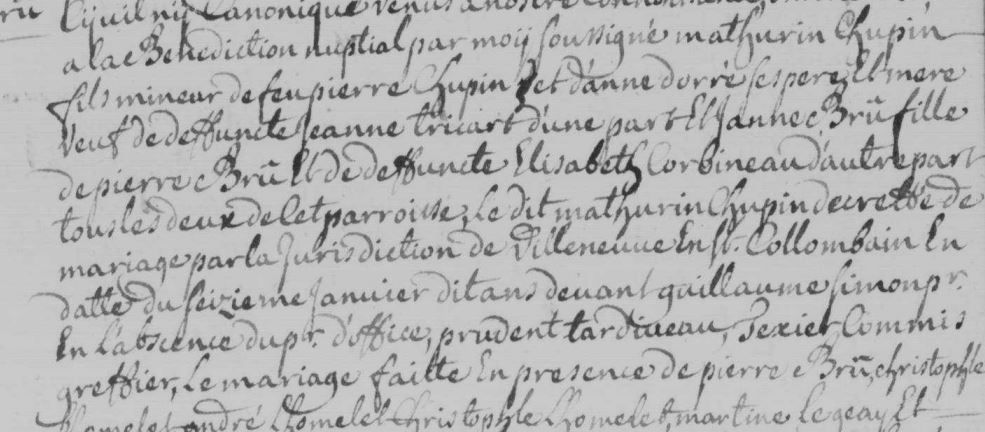 Cyvil ny Canonique venus a nostre
a la e Benediction nuptial par moy soussigné mathurin Chupin
fils mineur de feu pierre Chupin et d'anne dorré ses pere et mere
veuf de deffuncte Jeanne tricart d'une part Et Janne Brû fille
de pierre Brû Et de deffuncte Elisabeth Corbineau d'autre part
tous les deux de cet parroisse, Le dit mathurin Chupin decretté de
mariage par la Jurisdiction de Villeneuve En st. Collombain En
datte du seizieme Janvier dit ans devant guillaume simon pr.
En l'abscence du pr. d'office, prudent tardiveau, Texier Commis
greffier, Le mariage faitte En presence de pierre Brû, christophle
Lhomelet andré Lhomelet Christophle Lhomelet, martine Legeay Et